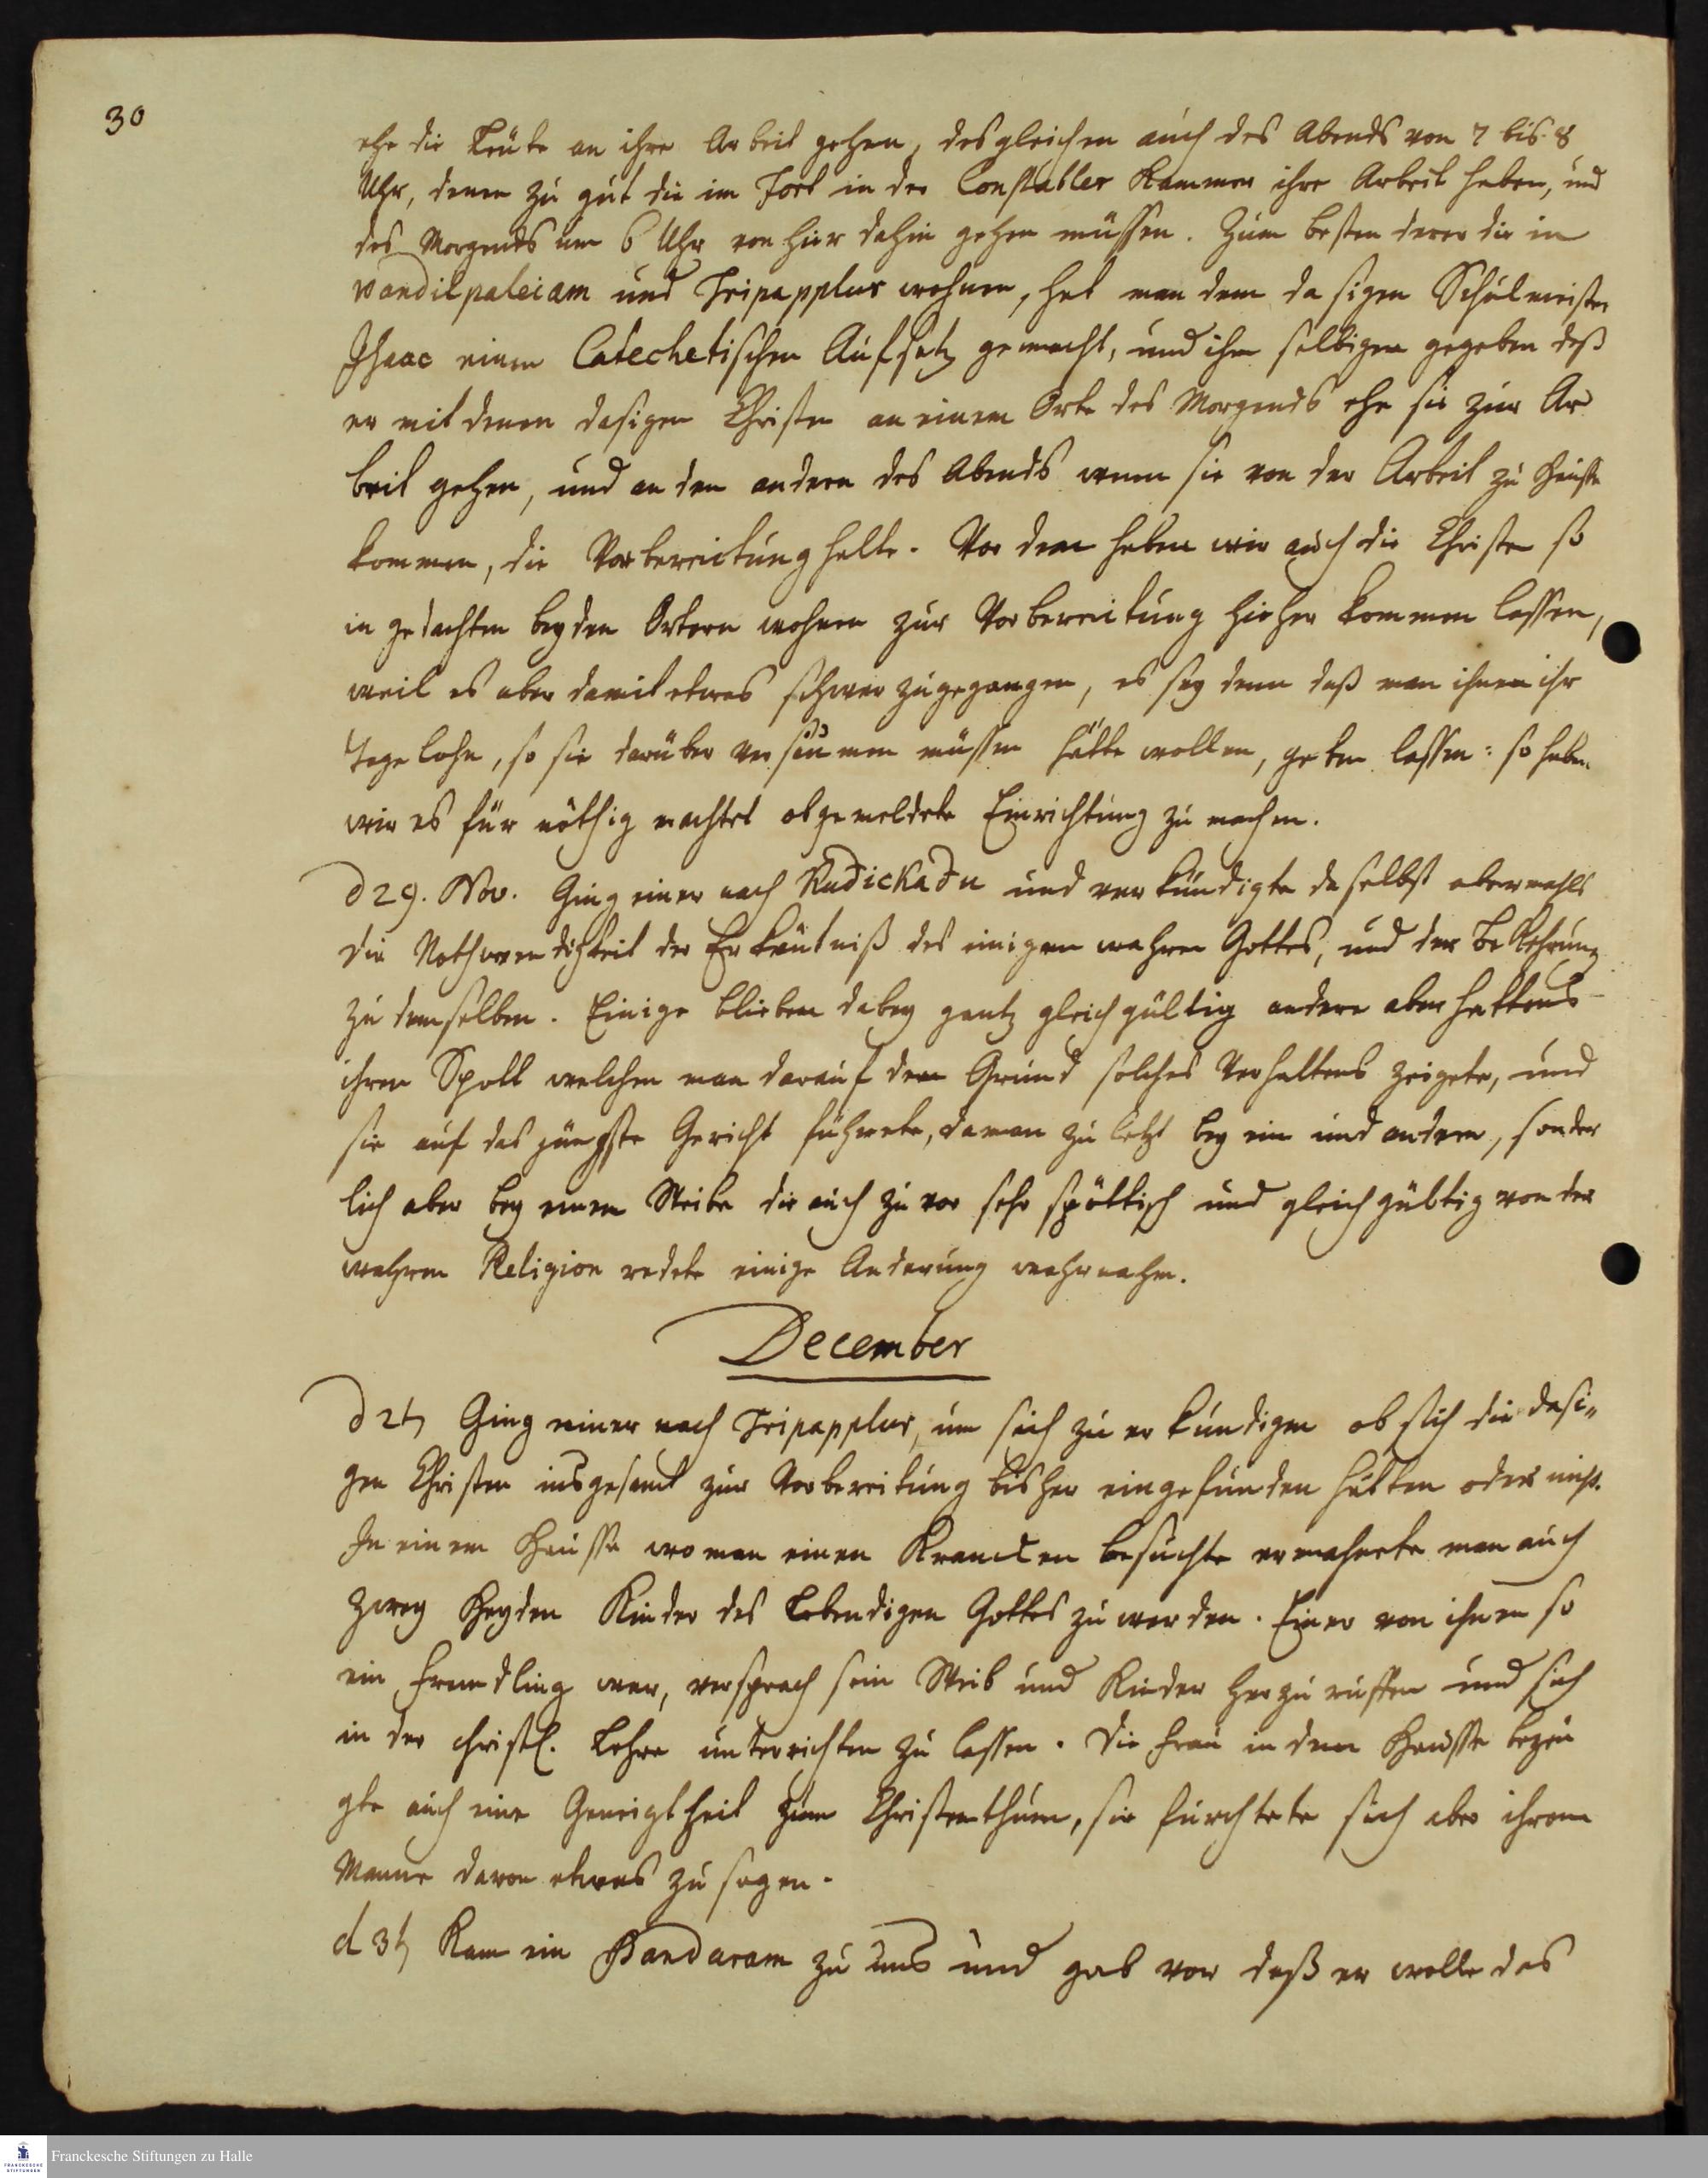 30
ehe die Leüte an ihre Arbeit gehen, desgleichen auch des Abends von 7 bis 8
Uhr, denen zu gut die im Fort in der Constabler Kammer ihre Arbeit haben, und
des Morgends um 6 Uhr von hier dahin gehen müssen. Zum besten derer die in
Vandilpaleiam und Tripapplur wohnen, hat man dem dasigen Schulmeister
Isaac einen Catechetischen Aufsatz gemacht, und ihm selbigen gegeben daß
er mit denen dasigen Christen an einem Orte des Morgends ehe sie zur Ar
beit gehen, und an dem andern des Abends wenn sie von der Arbeit zu Hausse
kommen, die Vorbereitung halte. Vor dem haben wir auch die Christen so
in gedachten beyden Örtern wohnen zur Vorbereitung hieher kommen lassen,
weil es aber damit etwas schwer zugegangen, es sey denn daß man ihnen ihr
Tagelohn, so sie darüber versäumen müssen hätte wollen, geben lassen: so haben
wir es für nöthig erachtet obgemeldete Einrichtung zu machen.
d 29. Nov. Ging einer nach Kudickadu und verkündigte daselbst abermahls
die Nothwendigkeit der Erkäntniß des einigen wahren Gottes, und der Bekehrung
zu demselben. Einige blieben dabey gantz gleichgültig andere aber hattens
ihren Spott welchen man darauf den Grund solches Verhaltens zeigete, und
sie auf das jüngste Gericht führete, da man zu letzt bey ein und andern, sonder
lich aber bey einem Weibe die auch zuvor sehr spöttisch und gleichgültig von der
wahren Religion redete einige Änderung wahrnahm.
December
d 2t Ging einer nach Tripapplur, um sich zu erkundigen ob sich die dasi„
gen Christen insgesamt zur Vorbereitung bisher eingefunden hätten oder nicht.
In einem Hausse wo man einen Krancken besuchte ermahnete man auch
zwey Heyden Kinder des Lebendigen Gottes zu werden. Einer von ihnen so
ein Fremdling war, versprach sein Weib und Kinder herzuruffen und sich
in der christl. Lehre unterrichten zu lassen. Die Frau in dem Hausse bezeu
gte auch eine Geneigtheit zum Christenthum, sie fürchtete sich aber ihrem
Manne davon etwas zu sagen.
d 3t Kam ein Pandaram zu uns und gab vor daß er wolle das
Franckesche Stiftungen zu Halle
FRANCKESCHE
STIFTUNGEN